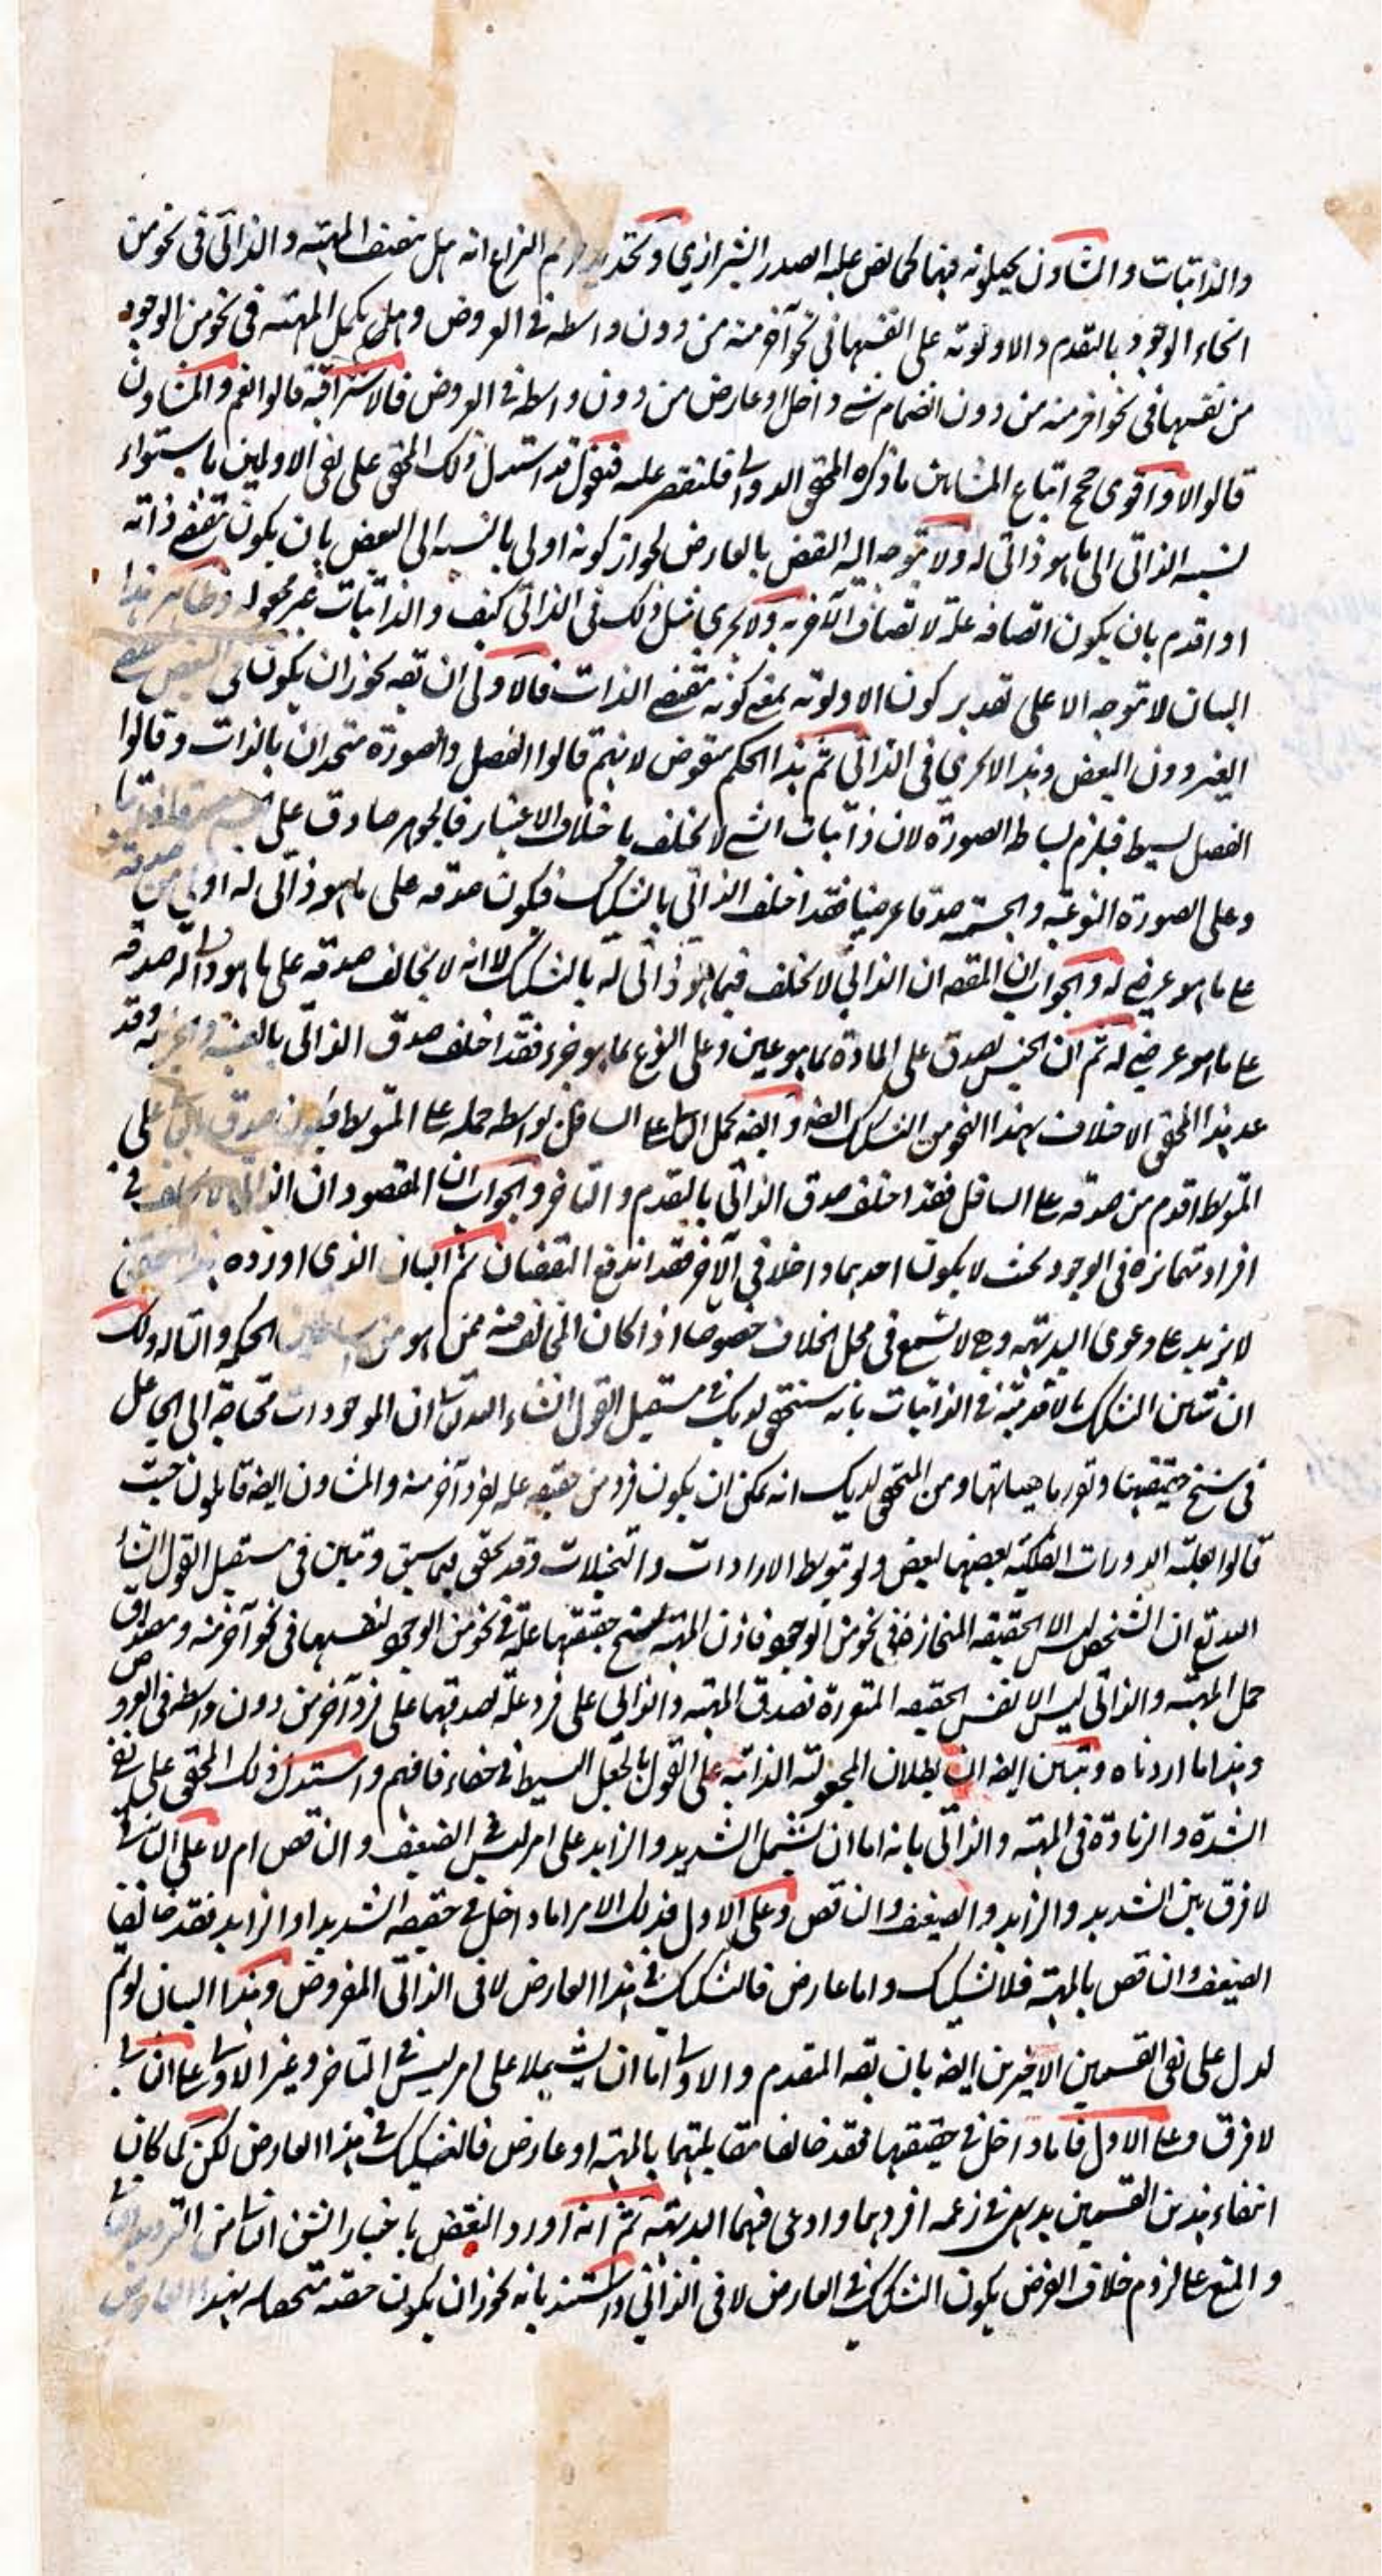 والذاتيات والمشاؤن يحيلونه فيهما كما نص عليه الصدر الشيرازي وتحديد حريم النزاع انه هل يتصف المهية والذاتي في نحو من
انحاء الوجود بالتقدم والاولوية على انفسها في نحو آخر منه من دون واسطة في العروض وهل يكمل المهية في نحو من الوجود
من نفسها في نحو اخر منه من دون انضمام شے داخل او عارض من دون واسطة في العروض فالاشراقية قالوا نعم والمشاؤن
قالوا لا واقوى حجج اتباع المشائين ما ذكره المحقق الدواني فلنقتصر عليه فنقول قد استدل ذلك المحقق على نفي الاولين باستواء
نسبة الذاتي الى ما هو ذاتي له ولا يتوجه اليه النقض بالعارض لجواز كونه اولى بالنسبة الى البعض بان يكون مقتضے ذاته
او اقدم بان يكون اتصافه علة لاتصاف الآخر به ولا يجري مثل ذلك في الذاتي كيف والذاتيات غير مجعولة وظاهر هذا
البيان لا يتوجه الا على تقدير كون الاولوية بمعنے كونه مقتضے الذات فالاولى ان يقه يجوز ان يكون في البعض مقتضے
الغير دون البعض وهذا لا يجري في الذاتي ثم هذا الحكم منقوض لانهم قالوا الفصل والصورة متحدان بالذات وقالوا
الفصل بسيط فيلزم بساطة الصورة لان ذاتيات الشے لا تختلف باختلاف الاعتبار فالجوهر صادق على الجسم صدقا ذاتيا
وعلى الصورة النوعية والجسمية صدقا عرضيا فقد اختلف الذاتي بالتشكيك فيكون صدقه على ما هو ذاتي له اولى من صدقه
على ما هو عرضي له والجواب ان المقصه ان الذاتي لا يختلف فيما هو ذاتي له بالتشكيك لا انه لا يخالف صدقه على ما هو ذاتي له صدقه
على ما هو عرضي له ثم ان الجنس يصدق على المادة بما هو عين وعلى النوع بما هو جزء فقد اختلف صدق الذاتي بالعينية والجزئية وقد
عد هذا المحقق الاختلاف بهذا النحو من التشكيك ايضه وايضه يحمل العالي على السافل بواسطة حمله على المتوسط فيكون صدق العالي على
المتوسط اقدم من صدقه على السافل فقد اختلف صدق الذاتي بالتقدم والتاخر والجواب ان المقصود ان الذاتي لا يختلف في
افراد متمايزة في الوجود بحيث لا يكون احدهما داخلا في الآخر فقد اندفع النقضان ثم البيان الذي اورده هذا المحقق
لا يزيد على دعوى البديهة وهي لا تسمع في محل الخلاف خصوصا اذا كان المخالف فيه ممن هو من اساطين الحكمة والتاله ولك
ان تبين التشكيك بالاقدمية في الذاتيات بانه سيتحقق لديك في مستقبل القول انشاء الله تعالى ان الموجودات محتاجة الى الجاعل
في سنخ حقيقتها وتقرر ماهياتها ومن المتحقق لديك انه يمكن ان يكون فرد من حقيقة علة لفرد آخر منه والمشاؤن ايضه قائلون حيث
قالوا بعلية الدورات الفلكية بعضها لبعض ولو بتوسط الارادات والتخيلات وقد تحقق فيما سبق وتبين في مستقبل القول انشاء
الله تع ان التشخص ليس الا الحقيقة المنحازة في نحو من الوجود فاذن المهية بسنخ حقيقتها علة في نحو من الوجود لنفسها في نحو آخر منه ومصداق
حمل المهية والذاتي ليس الا نفس الحقيقة المتقررة فصدق المهية والذاتي على فرد علة لصدقهما على فرد آخر من دون واسطة في العروض
وهذا ما اردناه وتبين ايضه ان بطلان المجعولية الذاتية على القول بالجعل البسيط في خفاء فافهم واستدل ذلك المحقق على نفي
الشدة والزيادة في المهية والذاتي بانه اما ان يشتمل الشديد والزايد على امر ليس في الضعيف والناقص ام لا على الثاني
لا فرق بين الشديد والزايد والضعيف والناقص وعلى الاول فذلك الامر اما داخل في حقيقة الشديد او الزايد فقد خالفا
الضعيف والناقص بالمهية فلا تشكيك واما عارض فالتشكيك في هذا العارض لا في الذاتي المفروض وهذا البيان لو تم
لدل على نفي القسمين الاخيرين ايضه بان يقه المقدم والاولى اما ان يشتملا على امر ليس في المتاخر وغير الاولى على الثاني
لا فرق وعلى الاول فاما داخل في حقيقتهما فقد خالفا مقابلتهما بالمهية او عارض فالتشكيك في هذا العارض لكن لما كان
انتفاء هذين القسمين بديهي في زعمه افردهما وادعى فيهما البديهة ثم انه اورد النقض باختيار الشق الثاني من الترديد الثاني
والمنع على لزوم خلاف الفرض بكون التشكيك في العارض لا في الذاتي واستند بانه يجوز ان يكون حقيقة متحصلة بهذا العارض